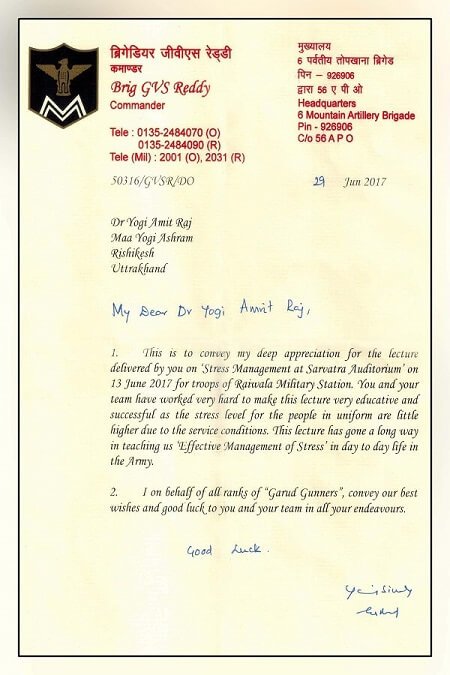 ब्रिगेडियर जीवीएस रेड्डी
कमाण्डर
Brig GVS Reddy
Commander
Tele : 0135-2484070 (O)
0135-2484090 (R)
Tele (Mil) : 2001 (O), 2031 (R)
मुख्यालय
6 पर्वतीय तोपखाना ब्रिगेड
पिन – 926906
द्वारा 56 ए पी ओ
Headquarters
6 Mountain Artillery Brigade
Pin - 926906
C/o 56 A P O
50316/GVSR/DO
29 Jun 2017
Dr Yogi Amit Raj
Maa Yogi Ashram
Rishikesh
Uttrakhand
My Dear Dr Yogi Amrit Raj,
1. This is to convey my deep appreciation for the lecture
delivered by you on 'Stress Management at Sarvatra Auditorium' on
13 June 2017 for troops of Raiwala Military Station. You and your
team have worked very hard to make this lecture very educative and
successful as the stress level for the people in uniform are little
higher due to the service conditions. This lecture has gone a long way
in teaching us 'Effective Management of Stress' in day to day life in
the Army.
2. I on behalf of all ranks of "Garud Gunners", convey our best
wishes and good luck to you and your team in all your endeavours.
Good Luck.